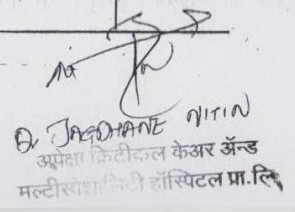 Dr JAGDHANE NITIN
अपेक्षा क्रिटीकल केअर ॲन्ड
मल्टीस्पेशालिटी हॉस्पिटल प्रा.लि.